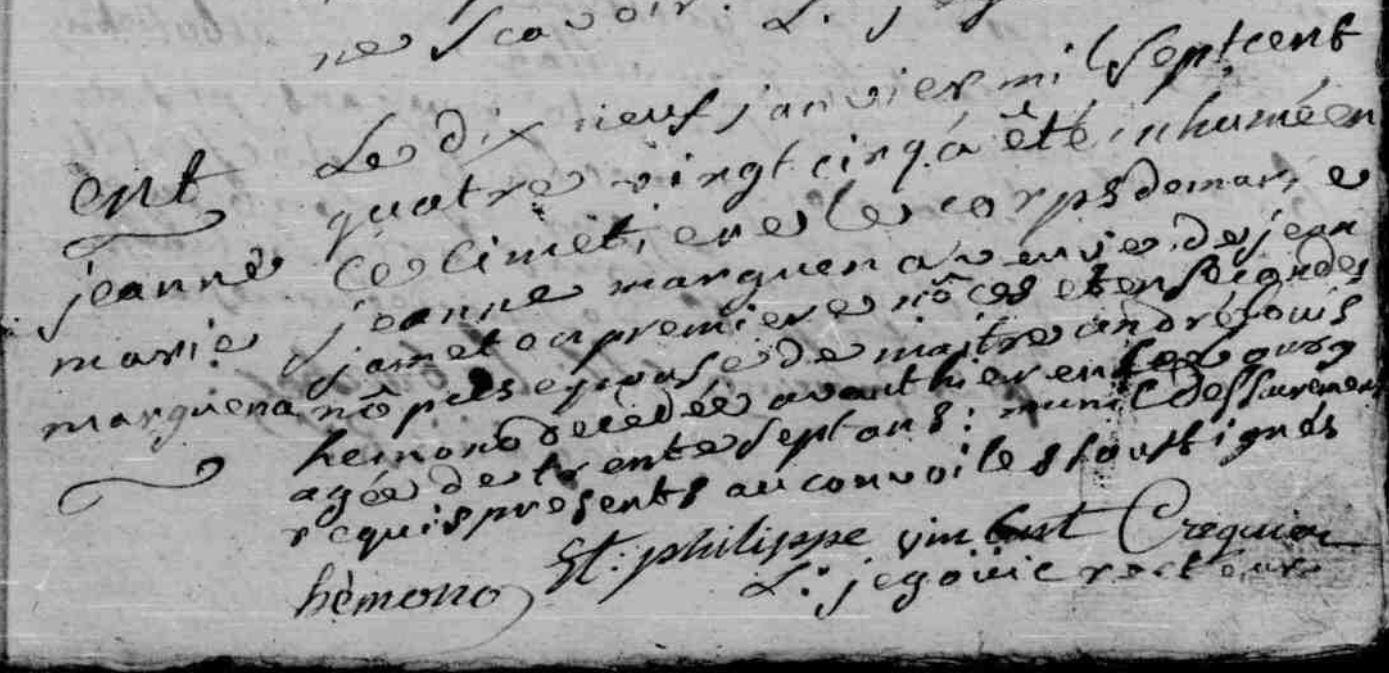 ne scavoir. L. jeg
Le dix neuf janvier mil sept cent
quatre vingt cinq a été inhumé en
ce cimetiere le corps de marie
jeanne marguena veuve de jean
jamet en premiere nôces et en secondes
nôpces epouse de maitre andré louis
hemono decedée avanthier en le bourg
agée de trente sept ans: munie des sacremens
requis presents au convoi les soussignés
hèmono St. philippe vincent Crequion
L. jegouic recteur
ent
jeanne
marie
marguena